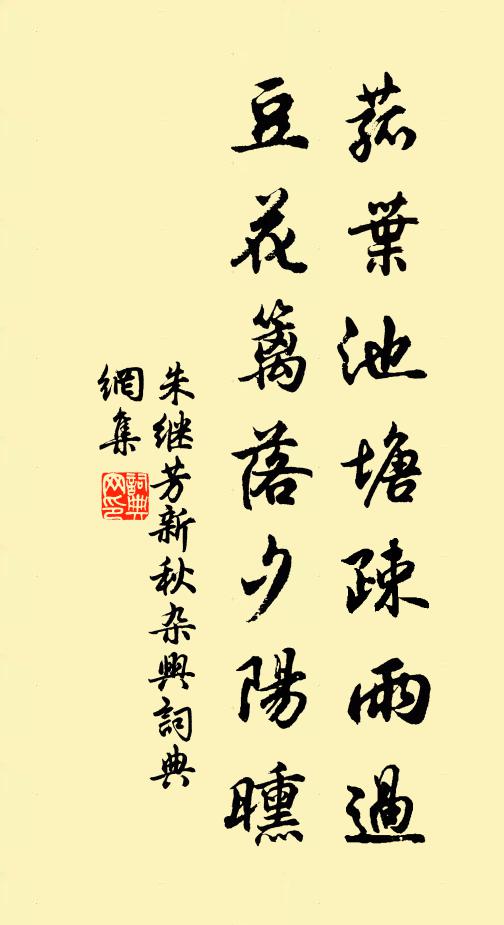 菰葉池塘疎雨過
豆花篱落夕陽曛
朱继芳新秋杂興詞典
網集
詞典
网印